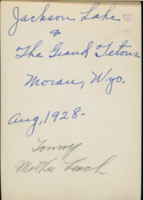 Jackson Lake
&
The Grand Tetons
Moran, Wyo.
Aug, 1928-
Tommy
Mother Leach